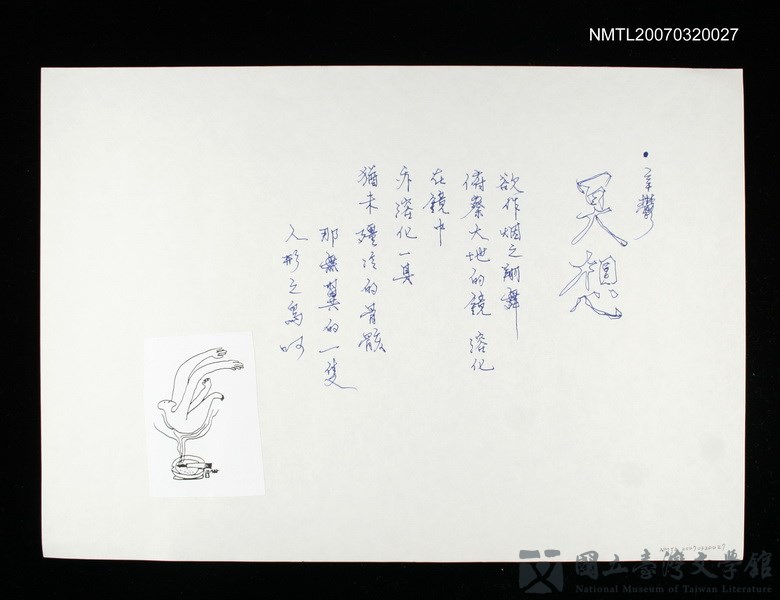 NMTL20070320027
•辛鬱
冥想
欲作烟之蹁舞
俯察大地的鏡 溶化
在鏡中
亦溶化一具
猶未殭冷的骨骸
那無翼的一隻
人形之鳥呵
NMTL20070320027
國立臺灣文學館
National Museum of Taiwan Literature